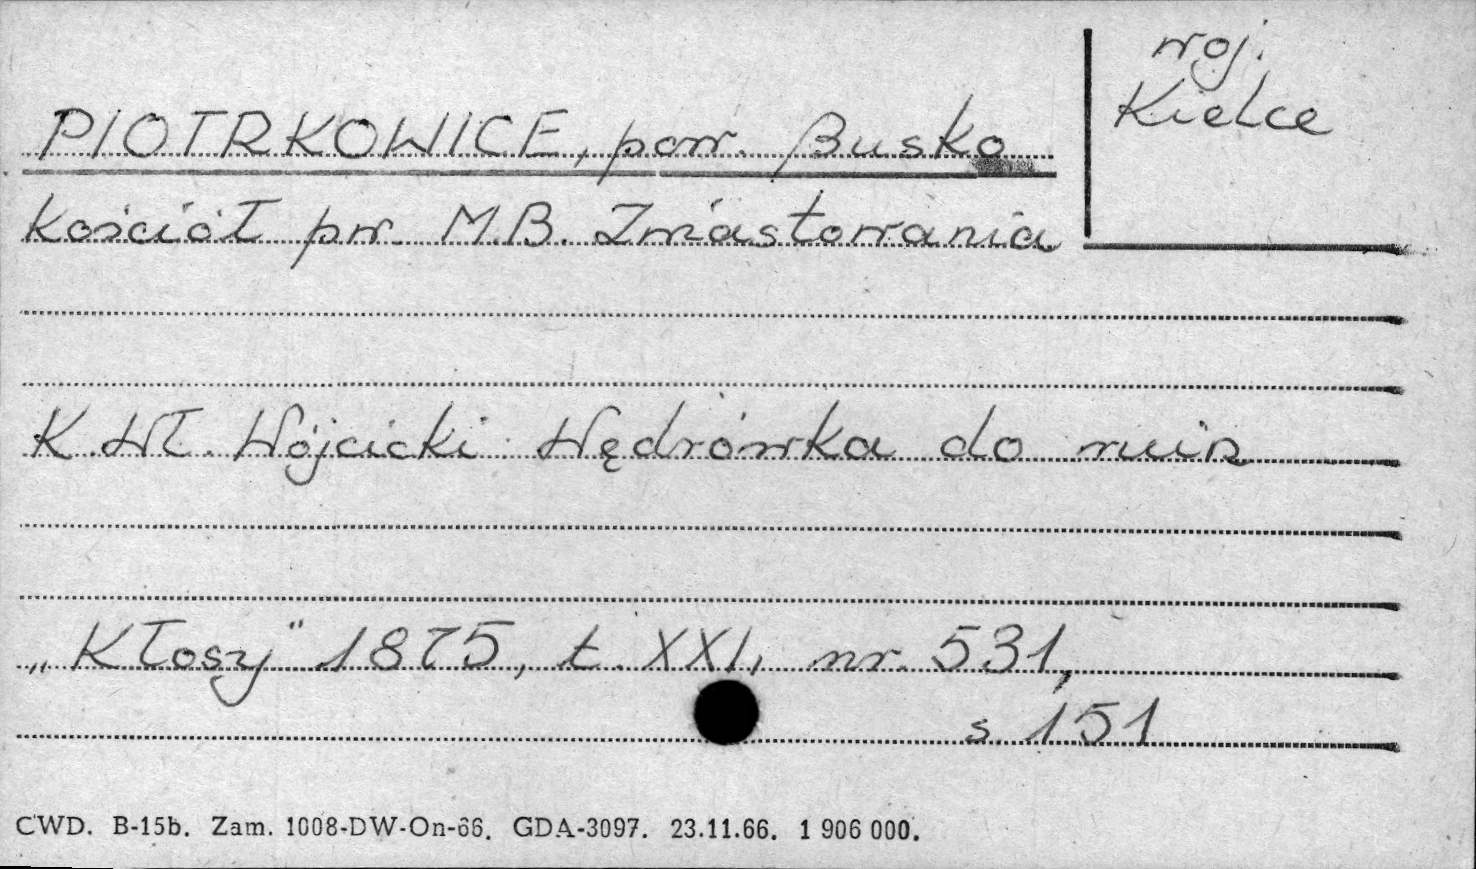 woj.
Kielce
PIOTRKOWICE, pow. Busko
Kościół pw. M.B. Zwiastowania
K. Wł. Wójcicki Wędrówka do ruin
„Kłosy" 1875, t. XXI, nr. 531,
s. 151
CWD. B-15b. Zam. 1008-DW-On-66. GDA-3097. 23.11.66. 1 906 000.